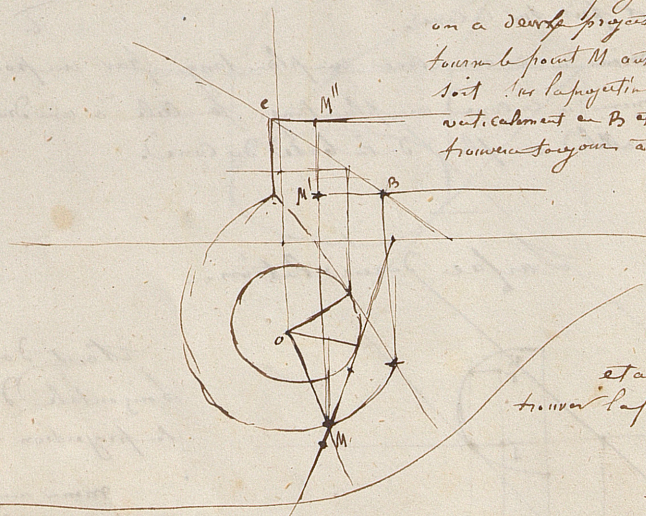 on a deux projec
tourne le point M au
soit sur la projectin
verticalement en B e
trouvera toujour a
e M"
M' B
o
M
eta
trouver la p